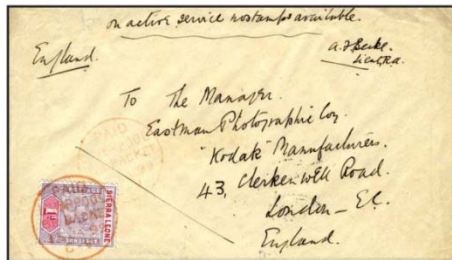 on active service no stamps available.
England.
A F Becke.
Lieut R.A.
To The Manager.
Eastman Photographic Coy
"Kodak" Manufacturers.
43, Clerkenwell Road.
London – E.C.
England.
PAID
LIVERPOOL
PACKET
PAID
LIVERPOOL
PACKET
SIERRA LEONE